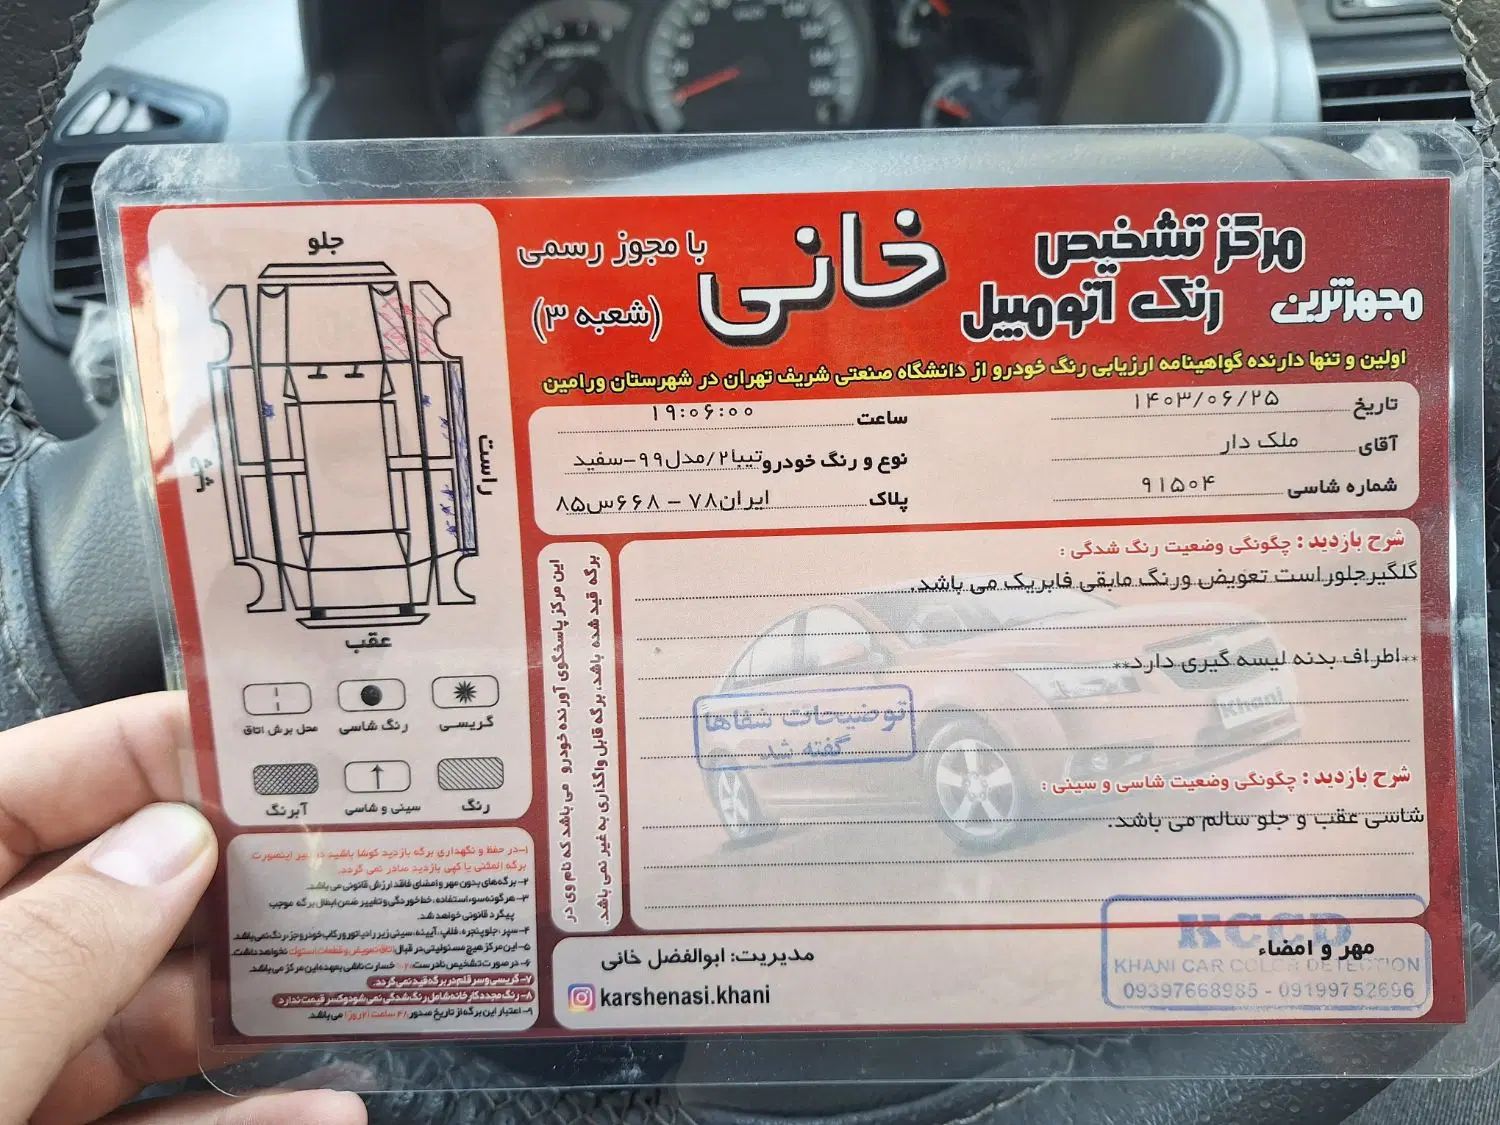 مرکز تشخیص
رنگ اتومبیل
مجهزترین
خانی
با مجوز رسمی
(شعبه ۳)
اولین و تنها دارنده گواهینامه ارزیابی رنگ خودرو از دانشگاه صنعتی شریف تهران در شهرستان ورامین
تاریخ ۱۴۰۳/۰۶/۲۵
ساعت ۱۹:۰۶:۰۰
آقای ملک دار
نوع و رنگ خودرو تیبا۲/مدل۹۹-سفید
شماره شاسی ۹۱۵۰۴
پلاک ایران۷۸ - ۶۶۸س۸۵
شرح بازدید : چگونگی وضعیت رنگ شدگی :
گلگیرجلوراست تعویض ورنگ مابقی فابریک می باشد.
**اطراف بدنه لیسه گیری دارد**
توضیحات شفاها
گفته شد
Khani
شرح بازدید : چگونگی وضعیت شاسی و سینی :
شاسی عقب و جلو سالم می باشد.
مهر و امضاء
KCCD
KHANI CAR COLOR DETECTION
09397668985 - 09199752696
مدیریت: ابوالفضل خانی
karshenasi.khani
این مرکز پاسخگوی آورنده خودرو می باشد که نام وی در
برگه قید شده باشد، برگه قابل واگذاری به غیر نمی باشد.
جلو
راست
چپ
عقب
گریسی
رنگ شاسی
محل برش اتاق
رنگ
سینی و شاسی
آبرنگ
۱-در حفظ و نگهداری برگه بازدید کوشا باشید در غیر اینصورت
برگه المثنی یا کپی بازدید صادر نمی گردد.
۲- برگه‌های بدون مهر و امضای فاقد ارزش قانونی می‌باشد.
۳- هرگونه سوءاستفاده، خط خوردگی و تغییر ضمن ابطال برگه موجب
پیگرد قانونی خواهد شد.
۴- سپر، جلوپنجره، فلاپ، آیینه، سینی زیر رادیاتور و رکاب خودرو جزء رنگ نمی باشد.
۵- این مرکز هیچ مسئولیتی در قبال اتاق تعویض و قطعات استوک نخواهد داشت.
۶- در صورت تشخیص نادرست خسارت ناشی بعهده این مرکز می باشد.
۷- گریسی و سر قلم در برگه قید نمی گردد.
۸- رنگ مجدد کارخانه شامل رنگ شدگی نمی شود و کسر قیمت ندارد
۹- اعتبار این برگه از تاریخ صدور ۴۸ ساعت (۲روز) می باشد.